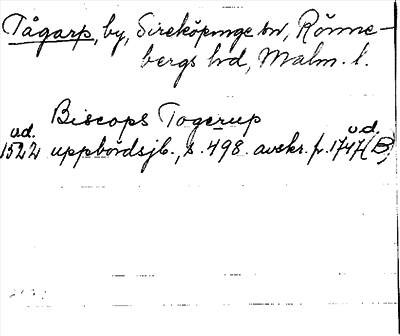 Tågarp, by, Sireköpinge sn, Rönne-
bergs hd, Malm. l.
Biscops Togerup
u.d. u.d.
1522 uppbördsjb., s. 498. avskr. fr. 1747 (B)